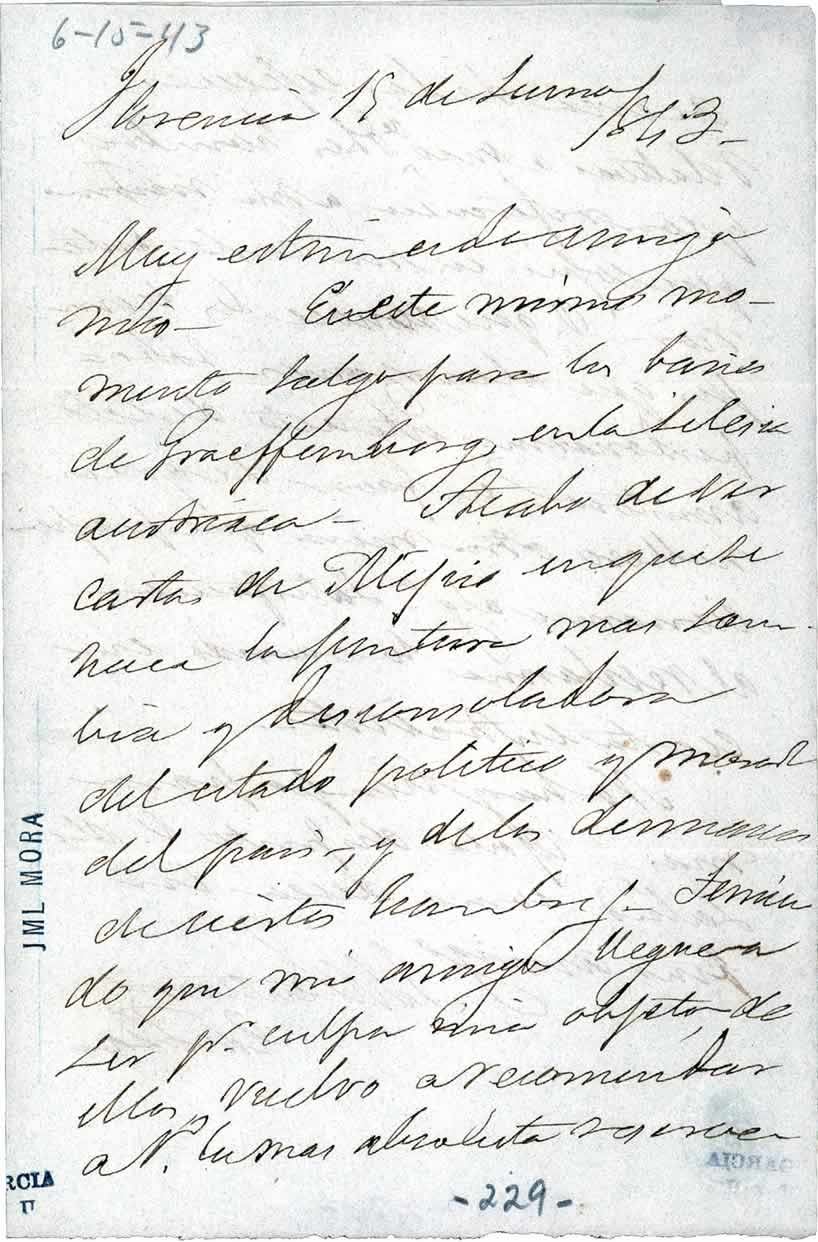 6-15-43
Florencia 15 de Junio/843-
Muy estimado amigo
mio- En este mismo mo-
mento salgo para los baños
de Graeffemberg, en la Silesia
austriaca- Acabo de ver
cartas de Mejico en que se
hace la pintura mas som-
bria y desconsoladora
del estado politico y moral
del pais, y de los desmanes
de ciertos hombres- Temien
do que mi amigo llegue a
ser pr. culpa mia objeto de
ellos, vuelvo a recomendar
a V. la mas absoluta reserva
JML MORA
RCIA
II
GARCIA
-229-